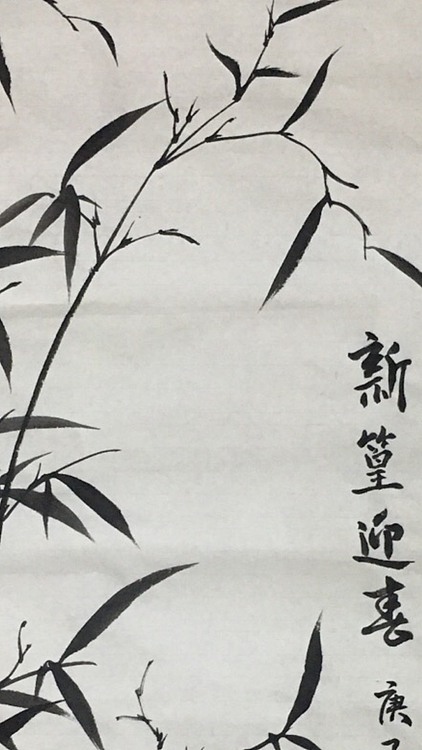 新篁迎春 庚